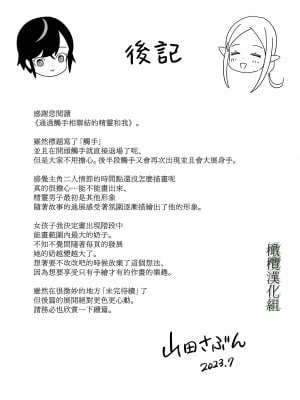 後記
感謝您閱讀
《通過觸手相聯結的精靈和我》。
雖然標題寫了「觸手」
並且在開頭觸手就直接退場了呢、
但是大家不用擔心。後半段觸手又會再次出現並且會大展身手。
感覺主角二人情節的時間點還沒怎麼描畫呢
真的很擔心…能不能畫出來、
精靈男子最初是其他形象
隨著故事的進展感受著氛圍逐漸描繪出了他的形象。
女孩子我決定畫出現階段中
能畫範圍內最大的奶子。
不知不覺間隨著每頁的發展
她的奶越變越大了。
想著要不改改吧的時候放棄了這個想法、
因為想要享受只有手繪才有的作畫的樂趣。
雖然在很微妙的地方「未完待續」了
但後篇的展開絕對更色更心動。
請務必也欣賞一下續篇。
山田さぶん
2023.7
橄欖漢化組